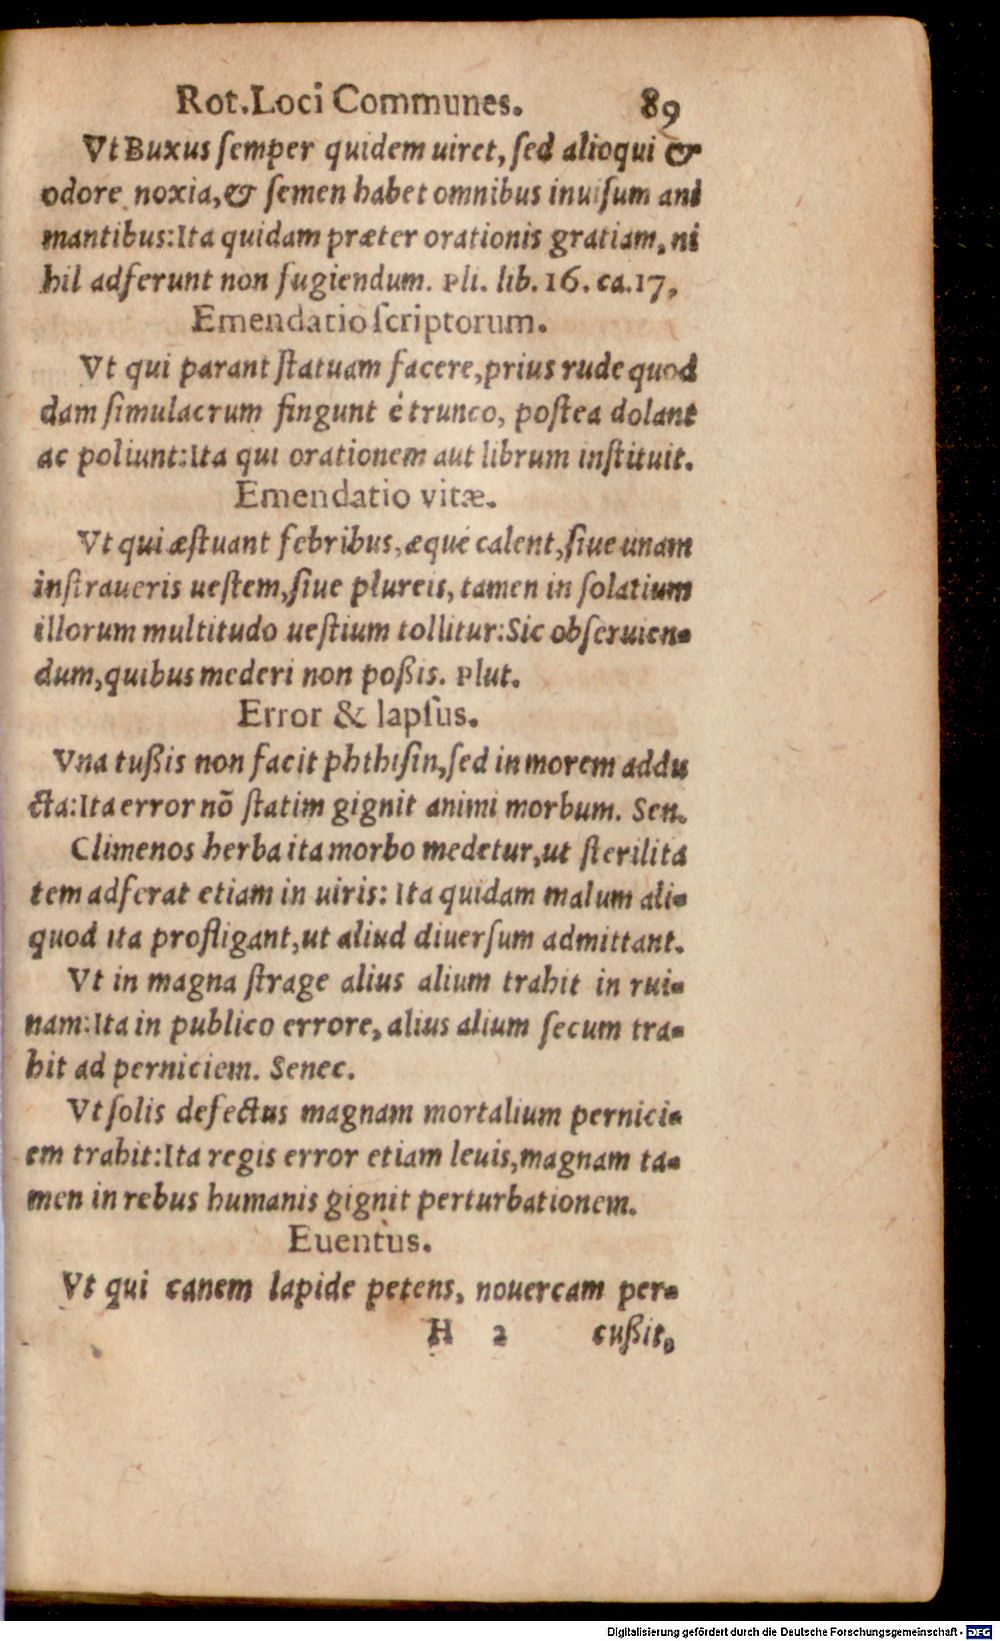 Rot. Loci Communes. 89
Vt Buxus ſemper quidem uiret, ſed alioqui &
odore noxia, & ſemen habet omnibus inuiſum ani
mantibus: Ita quidam præter orationis gratiam, ni
hil adferunt non fugiendum. Pli. lib. 16. ca. 17.
Emendatio ſcriptorum.
Vt qui parant ſtatuam facere, prius rude quod
dam ſimulacrum fingunt é trunco, poſtea dolant
ac poliunt: Ita qui orationem aut librum inſtituit.
Emendatio vitæ.
Vt qui æſtuant febribus, æqué calent, ſiue unam
inſtraueris ueſtem, ſiue plureis, tamen in ſolatium
illorum multitudo ueſtium tollitur: Sic obſeruien-
dum, quibus mederi non poßis. Plut.
Error & lapſus.
Vna tußis non facit phthiſin, ſed in morem addu
cta: Ita error nõ ſtatim gignit animi morbum. Sen.
Climenos herba ita morbo medetur, ut ſterilita
tem adferat etiam in uiris: Ita quidam malum ali-
quod ita profligant, ut aliud diuerſum admittant.
Vt in magna ſtrage alius alium trahit in rui-
nam: Ita in publico errore, alius alium ſecum tra-
hit ad perniciem. Senec.
Vt ſolis defectus magnam mortalium pernici-
em trahit: Ita regis error etiam leuis, magnam ta-
men in rebus humanis gignit perturbationem.
Euentus.
Vt qui canem lapide petens, nouercam per-
H 2 cußit,
Digitalisierung gefördert durch die Deutsche Forschungsgemeinschaft - DFG